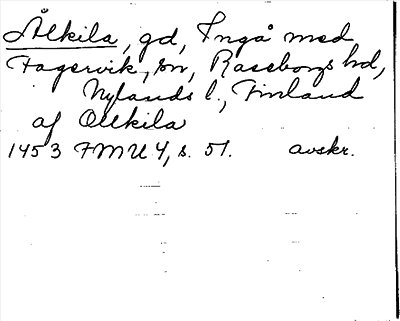 Ålkila, gd, Ingå med
Fagervik, sn, Raseborgs hd,
Nylands l., Finland
af Ollkila
1453 FMU 4, s. 51. avskr.